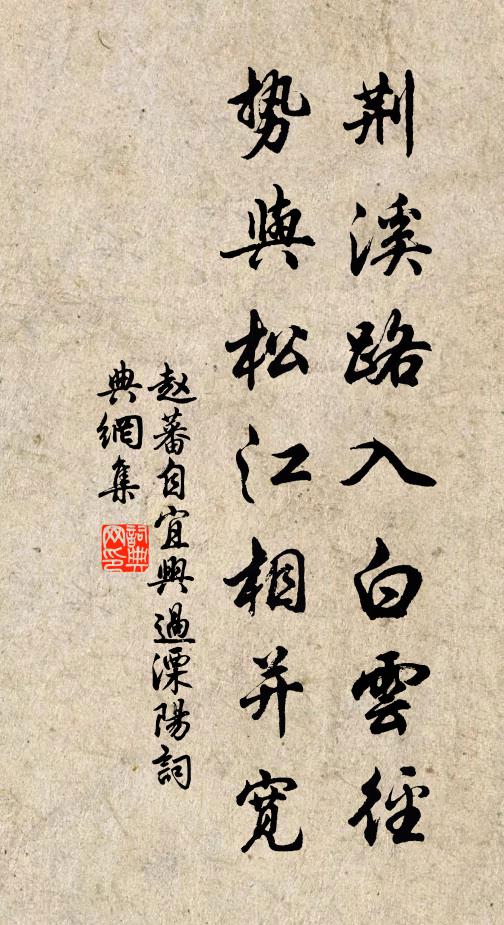 荆溪路入白雲徑
势與松江相并寬
赵蕃自宜興過溧陽詞
典網集
詞典
网印